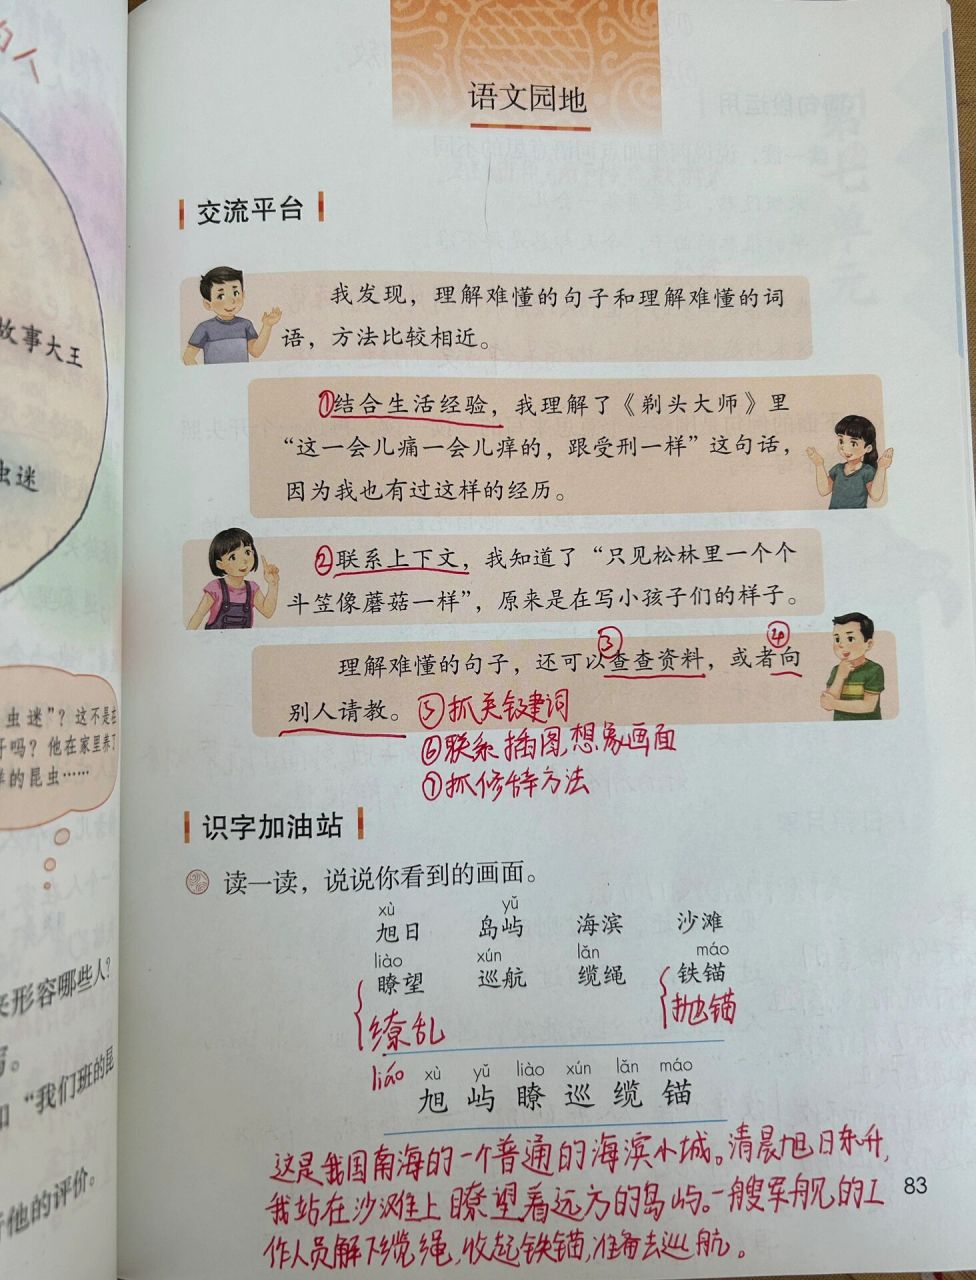 语文园地
交流平台
我发现，理解难懂的句子和理解难懂的词
语，方法比较相近。
①结合生活经验，我理解了《剃头大师》里
“这一会儿痛一会儿痒的，跟受刑一样”这句话，
因为我也有过这样的经历。
②联系上下文，我知道了“只见松林里一个个
斗笠像蘑菇一样”，原来是在写小孩子们的样子。
③ ④
理解难懂的句子，还可以查查资料，或者向
别人请教。⑤抓关键词
⑥联系插图，想象画面
⑦抓修辞方法
识字加油站
读一读，说说你看到的画面。
xù yǔ
旭日 岛屿 海滨 沙滩
liào xún lǎn máo
瞭望 巡航 缆绳 铁锚
缭乱 抛锚
liáo xù yǔ liào xún lǎn máo
旭 屿 瞭 巡 缆 锚
这是我国南海的一个普通的海滨小城。清晨旭日东升，
我站在沙滩上瞭望着远方的岛屿。一艘军舰的工
作人员解下缆绳，收起铁锚，准备去巡航。
83
故事大王
虫迷
虫迷”？这不是在
吗？他在家里养了
样的昆虫……
来形容哪些人？
写。
“我们班的昆
他的评价。